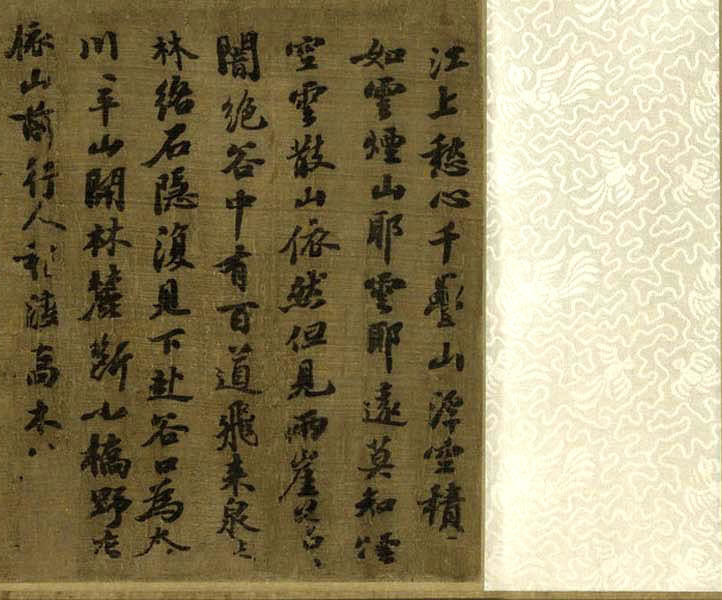 江上愁心千疊山浮空積
如雲煙山耶雲耶遠莫知煙
空雲散山依然但見兩崖蒼〻
闇絕谷中有百道飛来泉
林絡石隱復見下赴谷口為奔
川〻平山開林麓斷小橋野店
依山前行人稍度高木外